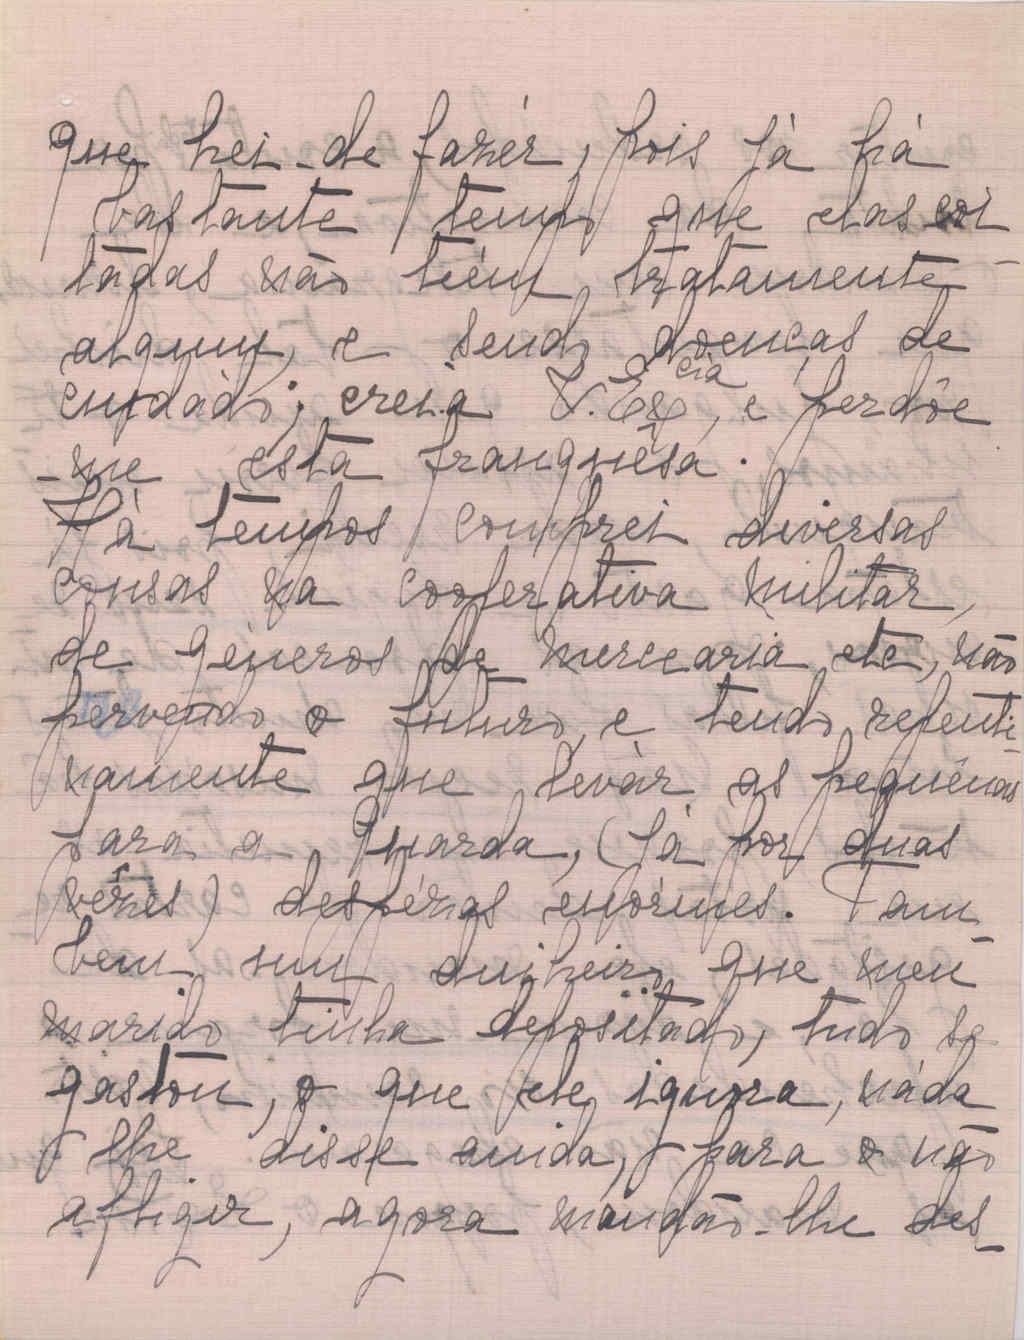 que hei-de fazêr, pois já há
bastante tempo que elas coi
tàdas não teem tratamente
algum, e sendo doenças de
cuidàdo; creia V. Ex.cia, e perdôe
-me esta franquêsa.
Hà tempos comprei diversas
cousas na cooperativa militar,
de géneros de mercearia, etc, não
pervendo o futuro, e tendo repenti-
namente que levàr as pequênas
para a Guarda, (já por duas
vêzes) despêzas enórmes. Tam-
bem um dinheiro que meu
marido tinha depositado, tudo se
gastou, o que ele ignora, náda
lhe disse ainda, para o não
afligir, agora mandão-lhe des-